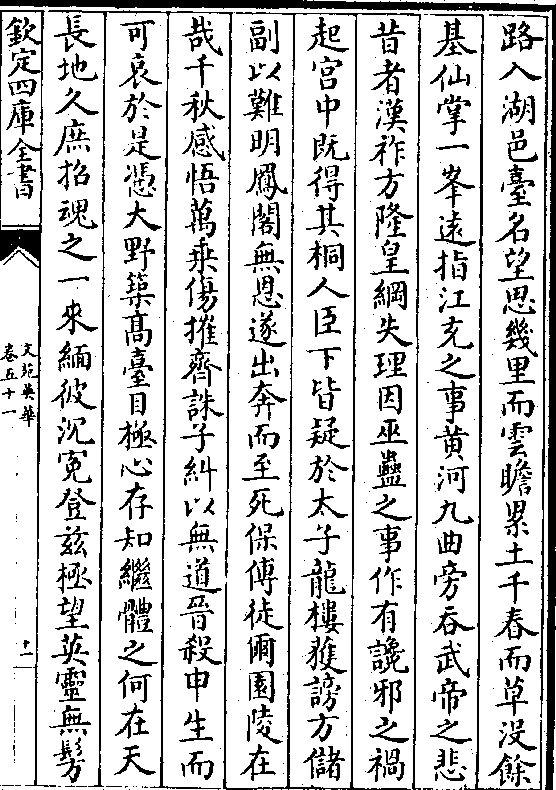 路入湖邑臺名望思幾里而雲瞻累土千春而草没餘
基仙掌一峯逺指江充之事黄河九曲旁吞武帝之悲
昔者漢祚方隆皇綱失理因巫蠱之事作有讒邪之禍
起宫中既得其桐人臣下皆疑於太子龍樓獲謗方儲
副以難明鳳閣無恩遂出奔而至死保傅徒爾園陵在
哉千秋感悟萬乗傷摧齊誅子糾以無道晉殺申生而
可哀於是憑大野築髙臺目極心存知繼體之何在天
長地久庶招魂之一來緬彼沉寃登兹極望英靈無髣
欽定四庫全書
文苑英華
卷五十一
十二